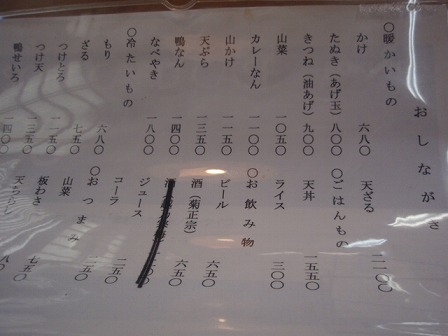 おしながき
〇暖かいもの
かけ 六八〇
たぬき(あげ玉) 八〇〇
きつね(油あげ) 九〇〇
山菜 一〇五〇
カレーなん 一一〇〇
山かけ 一一五〇
天ぷら 一三五〇
鴨なん 一四〇〇
なべやき 一八〇〇
〇冷たいもの
もり 六八〇
ざる 七五〇
つけとろ
つけ天 一三五〇
鴨せいろ 一四〇〇
天ざる
〇ごはんもの
天丼 一五五〇
ライス 三〇〇
〇お飲み物
ビール 六五〇
酒(菊正宗) 六五〇
ジュース 二五〇
コーラ 二五〇
〇おつまみ
山菜
板わさ 七五〇